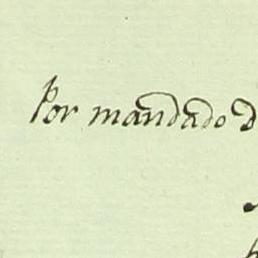 Por mandado d